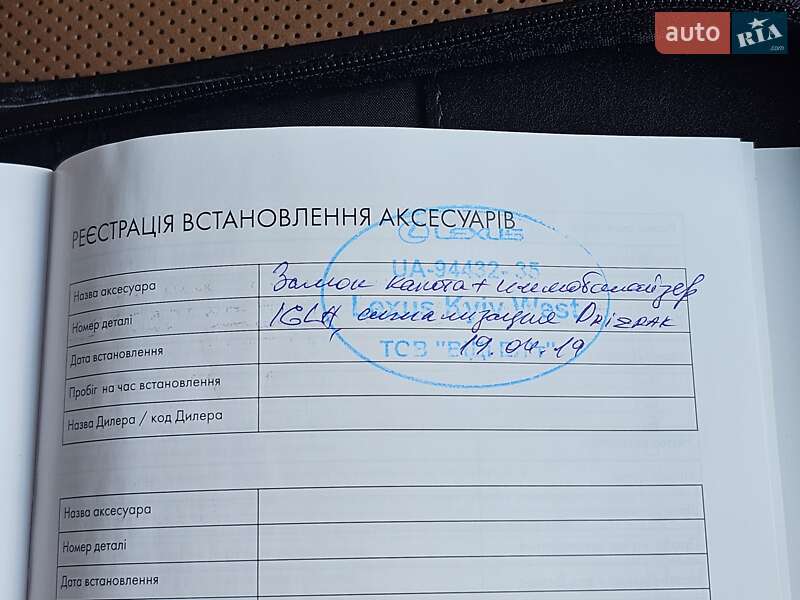 auto RIA .com
РЕЄСТРАЦІЯ ВСТАНОВЛЕННЯ АКСЕСУАРІВ
LEXUS
UA-94432-35
Lexus Kyiv West
ТОВ
Назва аксесуара Замок капота + иммобилайзер
Номер деталі IGLA, сигнализация
Дата встановлення 19.04.19
Пробіг на час встановлення
Назва Дилера / код Дилера
Назва аксесуара
Номер деталі
Дата встановлення